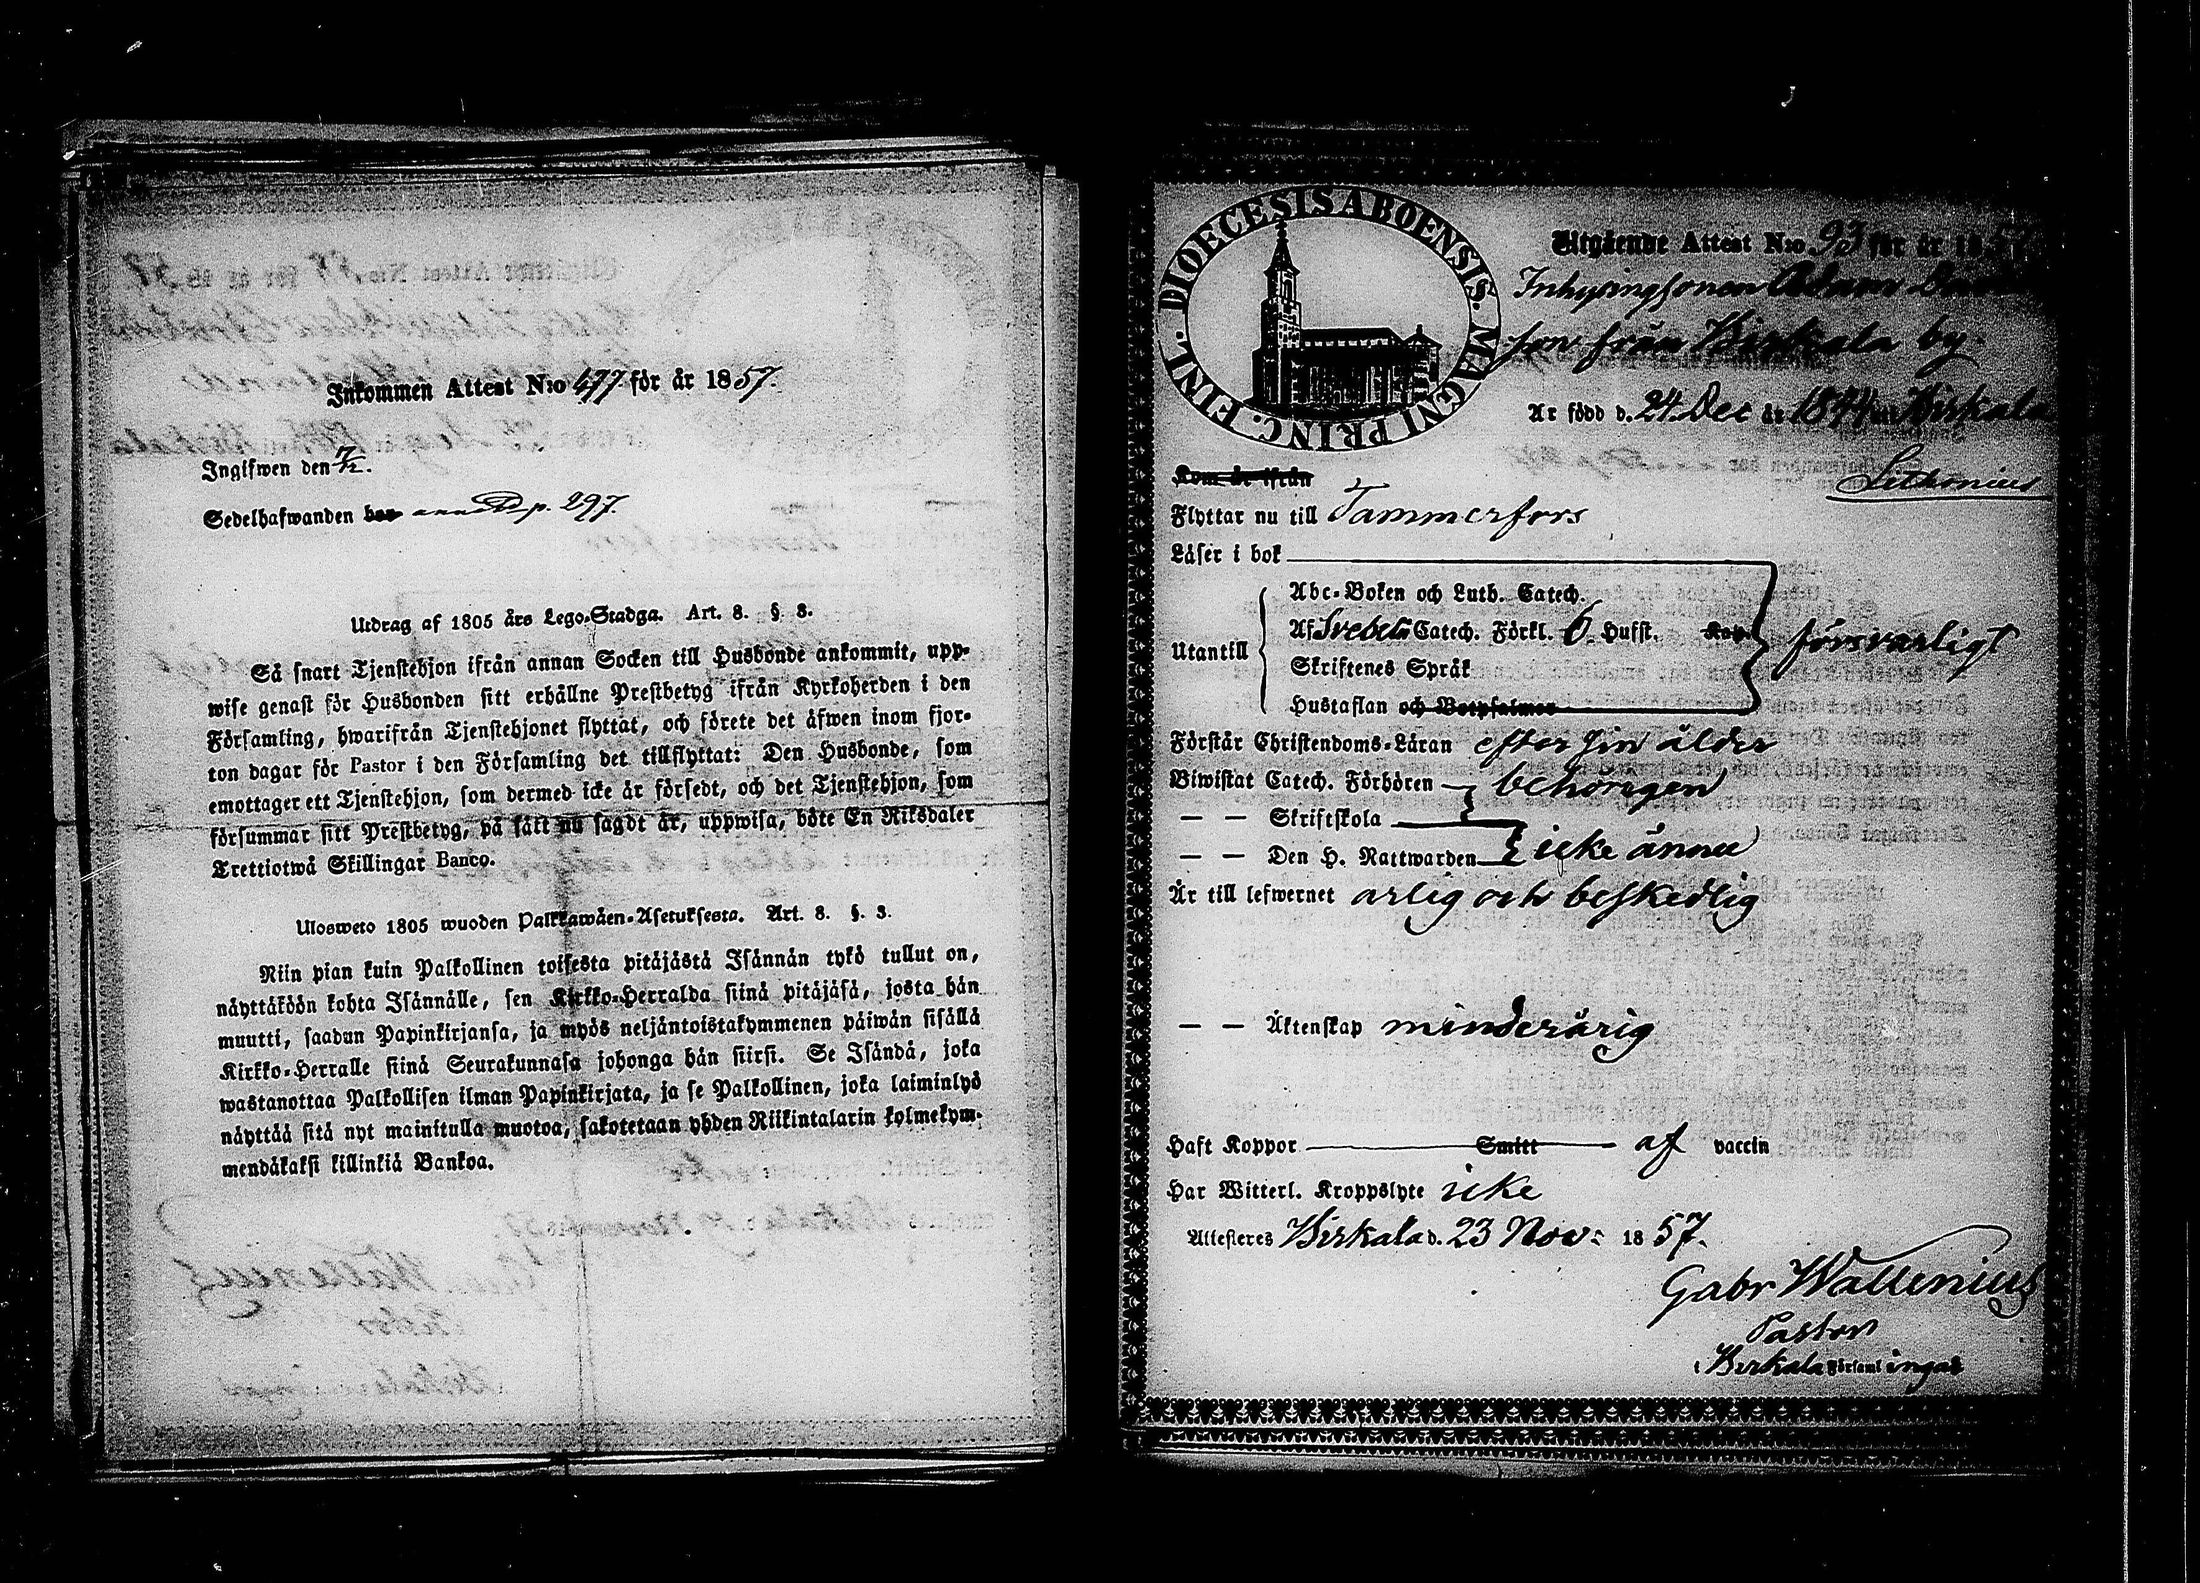 Inkommen Attest N:o 477 för år 1857.
Ingifwen den 7/12.
Sedelhafwanden har ann p. 297.
Utdrag af 1805 års Lego-Stadga. Art. 8. §. 3.
Så snart Tjenstehjon ifrån annan Socken till Husbonde ankommit, upp-
wise genast för Husbonden sitt erhållne Prestbetyg ifrån Kyrkoherden i den
Församling, hwarifrån Tjenstehjonet flyttat, och förete det äfwen inom fjor-
ton dagar för Pastor i den Församling det tillflyttat: Den Husbonde, som
emottager ett Tjenstehjon, som dermed icke är försedt, och det Tjenstehjon, som
försummar sitt Prestbetyg, på sätt nu sagdt är, uppwisa, böte En Riksdaler
Trettiotwå Skillingar Banco.
Ulosweto 1805 wuoden Palkkawäen-Asetuksesta. Art. 8. §. 3.
Niin pian kuin Palkollinen toisesta pitäjästä Isännän tykö tullut on,
näyttäköön kohta Isännälle, sen Kirkko-Herralda siinä pitäjäsä, josta hän
muutti, saadun Papinkirjansa, ja myös neljäntoistakymmenen päiwän sisällä
Kirkko-Herralle siinä Seurakunnasa johonga hän siirsi. Se Isändä, joka
wastanottaa Palkollisen ilman Papinkirjata, ja se Palkollinen, joka laiminlyö
näyttää sitä nyt mainitulla muotoa, sakotetaan yhden Riikintalarin kolmekym-
mendäkaksi killinkiä Bankoa.
DIOECESIS ABOENSIS. MAGNI PRINC. FINL.
Utgående Attest N:o 93 för år 1857
Inhysingssonen Adam
son från Birkala by.
Är född d. 24 Dec år 1844 i Birkala
Lithonius
Kom år ifrån
Flyttar nu till Tammerfors
Läser i bok
Abc-Boken och Luth. Catech.
Utantill Af Svebeli Catech. Förkl. 6 Hufst. Kap. försvarligt
Skriftenes Språk
Hustaflan och Botpsalmer
Förstår Christendoms-Läran efter sin ålder
Biwistat Catech. Förhören behörigen
— — Skriftskola
— — Den H. Nattwarden icke ännu
Är till lefwernet ärlig och beskedlig
— — Äktenskap minderårig
Haft Koppor Smitt af vaccin
Har Witterl. Kroppslyte icke
Attesteres Birkala d. 23 Nov: 1857.
Gabr Wallenius
Pastor
i Birkala Församlingar